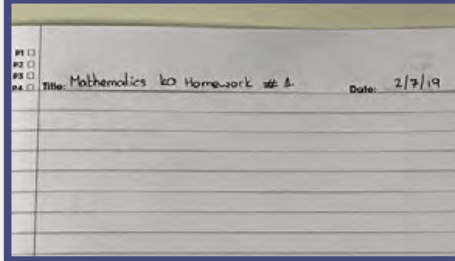 P1
P2
P3
P4 Title: Mathematics Homework # 1 Date: 2/7/19